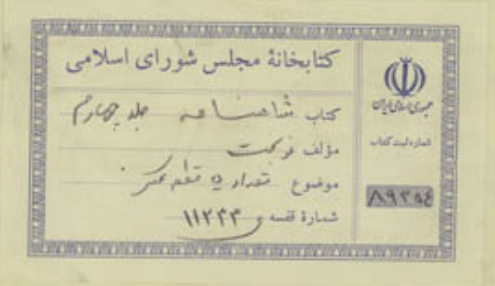 کتابخانهٔ مجلس شورای اسلامی
کتاب شاهنامه جلد چهارم
مؤلف
موضوع تعداد قطعه عکس
شمارهٔ قفسه ۱۱۲۳۳
جمهوری اسلامی ایران
شماره ثبت کتاب
۸۹۲۵۴